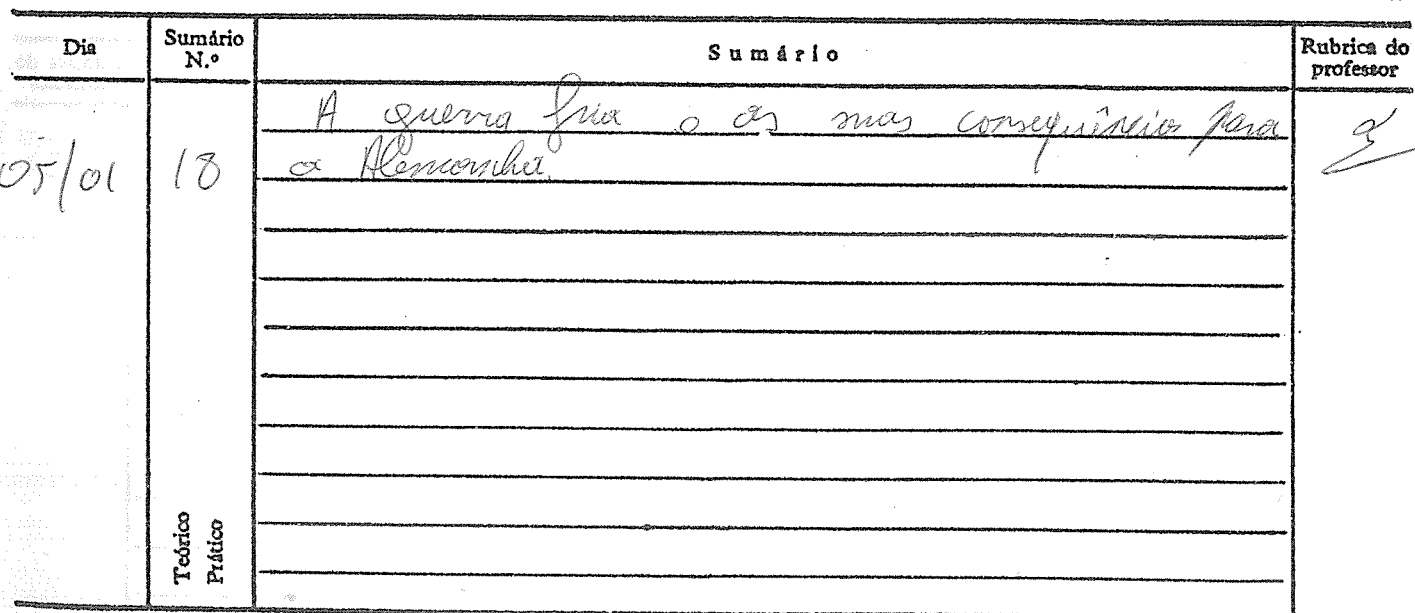 Dia Sumário N.º Sumário Rubrica do professor
A guerra fria e as suas consequências para
05/01 18 a Alemanha.
Teórico
Prático